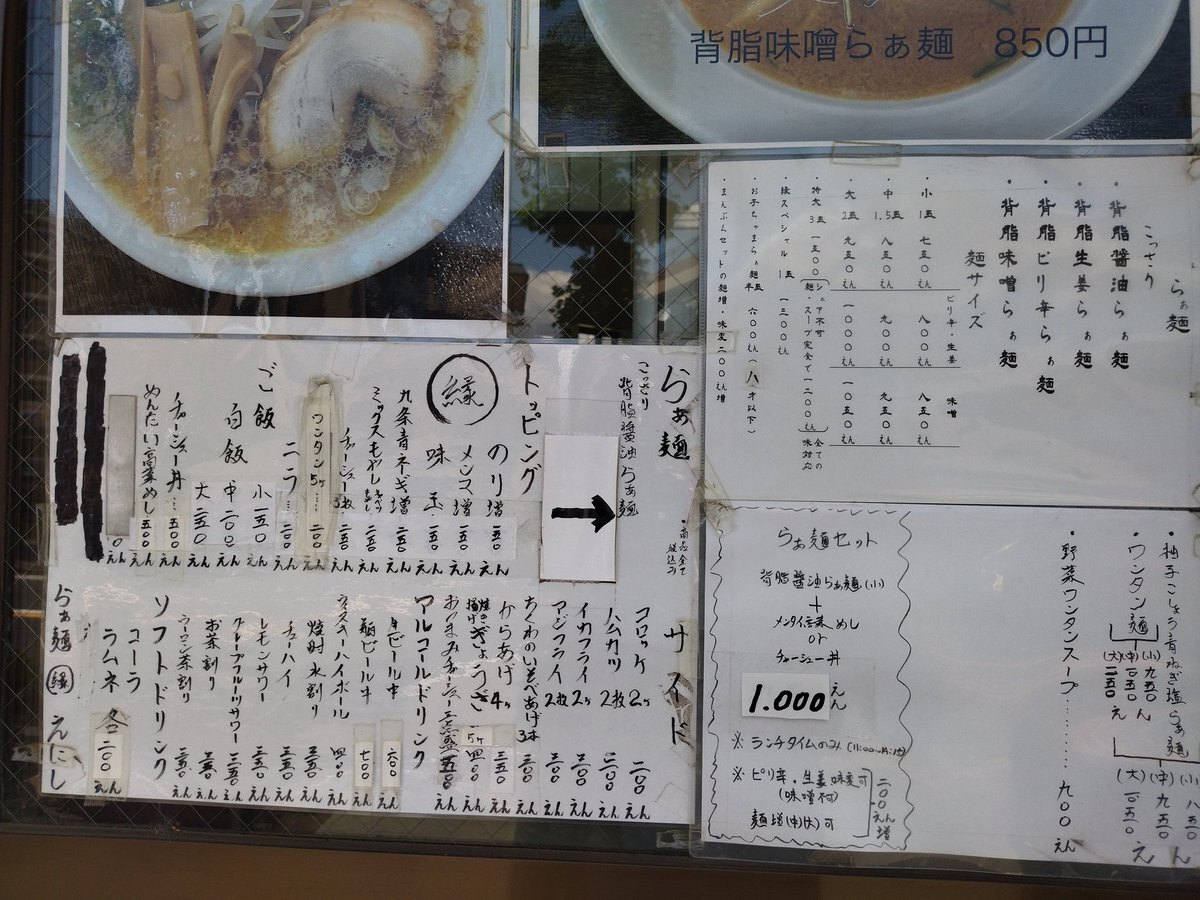 背脂味噌らぁ麺 850円
らぁ麺
こってり
・背脂醤油らぁ麺
・背脂生姜らぁ麺
・背脂ピリ辛らぁ麺
・背脂味噌らぁ麺
麺サイズ
ピリ辛・生姜
味噌
・小 1玉 七五〇えん 八〇〇えん 八五〇えん
・中 1.5玉 八五〇えん 九〇〇えん 九五〇えん
・大 2玉 九五〇えん 一〇〇〇えん 一〇五〇えん
・特大 3玉 一五〇〇えん
シェア不可
麺・スープ完食で一二〇〇えん
全ての味対応
・縁スペシャル 1玉 一三〇〇えん
・お子ちゃまらぁ麺 半玉 六〇〇えん(八才以下)
・まんぷくセットの麺増・味変二〇〇えん増
らぁ麺
こってり
背脂醤油らぁ麺
・商品全て税込み
トッピング
のり増 一五〇えん
メンマ増 一五〇えん
味玉 一五〇えん
縁
九条青ネギ増 二五〇えん
ミックスもやし
チャーシュー
ワンタン5ヶ…二〇〇えん
ニラ…二〇〇えん
ご飯
白飯
小 一五〇えん
中 二〇〇えん
大 二五〇えん
チャーシュー丼…五〇〇えん
めんたい高菜めし 五〇〇えん
サイド
コロッケ 2ヶ 二〇〇えん
ハムカツ 2枚 三〇〇えん
イカフライ 2ヶ 三〇〇えん
アジフライ 2枚 三〇〇えん
ちくわのいそべあげ 3本 三〇〇えん
からあげ 4ヶ 三五〇えん
ぎょうざ 5ヶ 四〇〇えん
おつまみチャーシュー
アルコールドリンク
生ビール中 六〇〇えん
瓶ビール中 七〇〇えん
ウイスキーハイボール 四〇〇えん
焼酎 水割り 三五〇えん
チューハイ 三五〇えん
レモンサワー 三五〇えん
グレープフルーツサワー 三五〇えん
お茶割り 三五〇えん
ウーロン茶割り 三五〇えん
ソフトドリンク
コーラ
ラムネ 各二〇〇えん
らぁ麺 縁 えにし
らぁ麺セット
背脂醤油らぁ麺(小)
+
メンタイ高菜めし
or
チャーシュー丼
1.000えん
※ランチタイムのみ
※ピリ辛・生姜 味変可
(味噌不可)
麺増(中)(大)可
二〇〇えん増
・柚子こしょう青ねぎ塩らぁ麺
(小) 八五〇
(中) 九五〇
(大) 一〇五〇えん
・ワンタン麺
(小) 九五〇
(中) 一〇五〇
(大) 一一五〇えん
・野菜ワンタンスープ………九〇〇えん